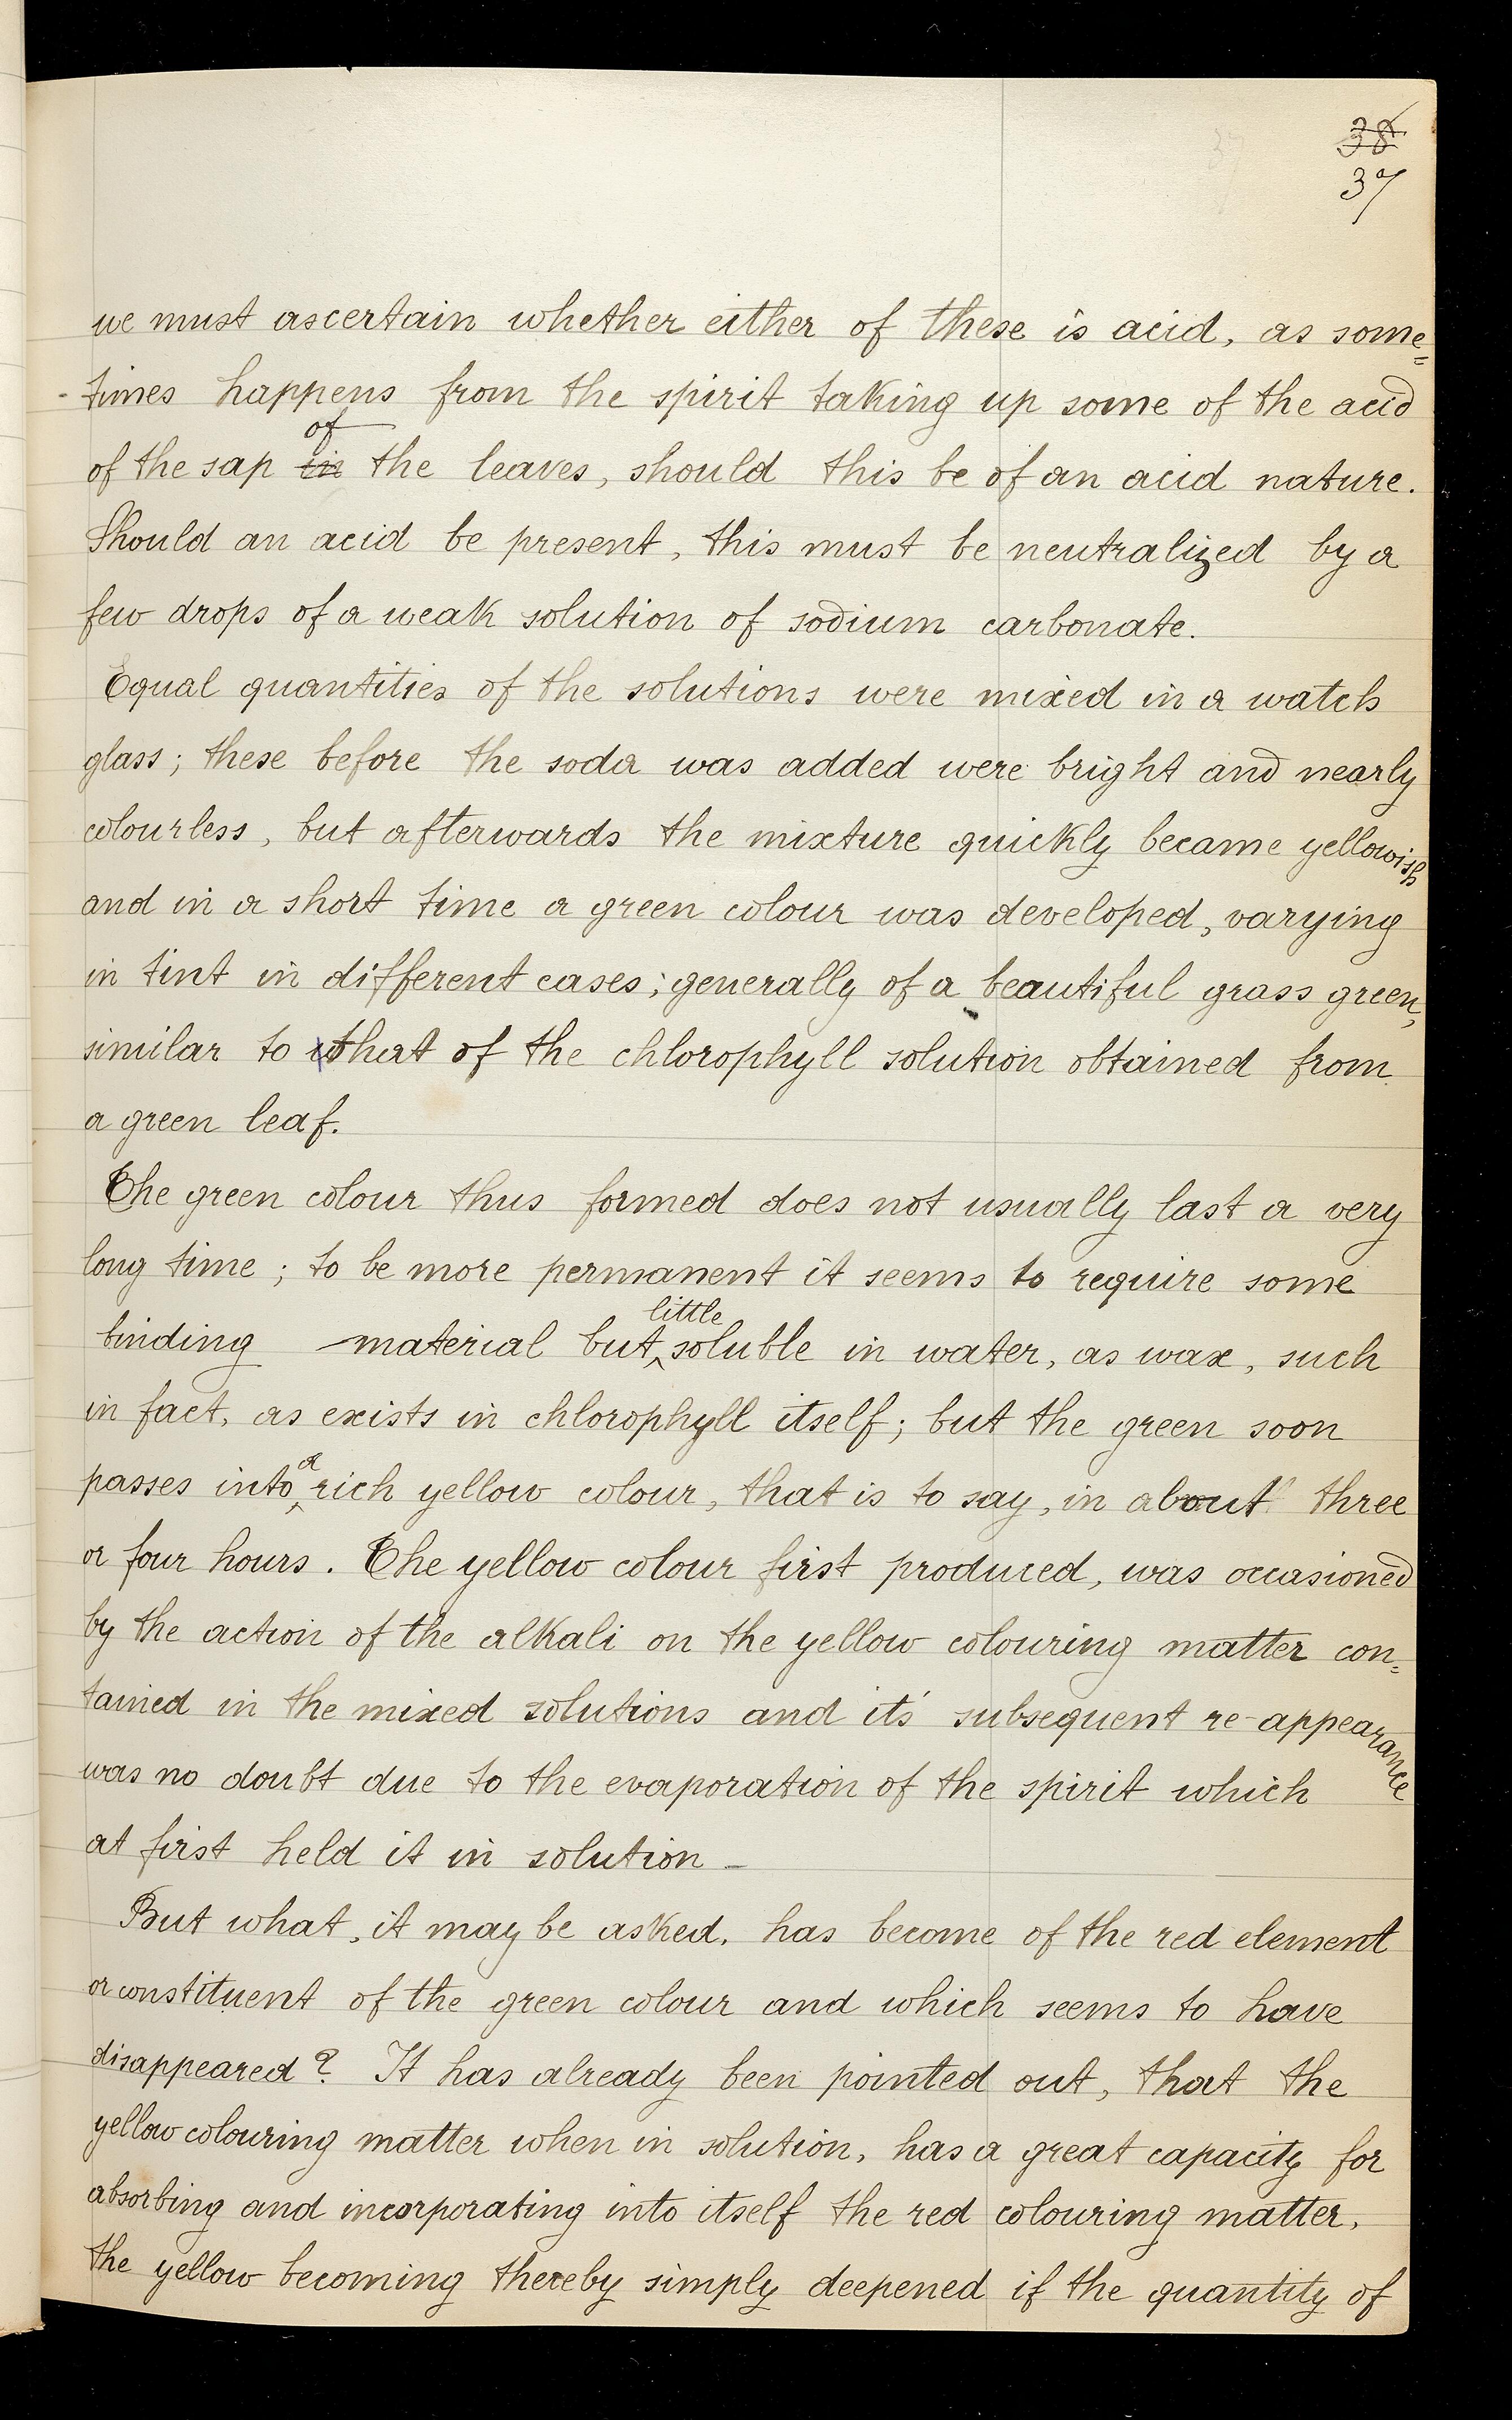 38
37
we must ascertain whether either of these is acid, as some=
-times happens from the spirit taking up some of the acid
of
of the sap in the leaves, should this be of an acid nature.
Should an acid be present, this must be neutralized by a
few drops of a weak solution of sodium carbonate.
Equal quantities of the solutions were mixed in a watch
glass; these before the soda was added were bright and nearly
colourless, but afterwards the mixture quickly became yellowish
and in a short time a green colour was developed, varying
in tint in different cases; generally of a beautiful grass green,
similar to that of the chlorophyll solution obtained from
a green leaf.
The green colour thus formed does not usually last a very
long time; to be more permanent it seems to require some
little
binding material but soluble in water, as wax, such
in fact, as exists in chlorophyll itself; but the green soon
a
passes into rich yellow colour, that is to say, in about three
or four hours. The yellow colour first produced, was occasioned
by the action of the alkali on the yellow colouring matter con=
tained in the mixed solutions and it's subsequent re-appearance
was no doubt due to the evaporation of the spirit which
at first held it in solution –
But what, it may be asked, has become of the red element
or constituent of the green colour and which seems to have
disappeared? It has already been pointed out, that the
yellow colouring matter when in solution, has a great capacity for
absorbing and incorporating into itself the red colouring matter,
the yellow becoming thereby simply deepened if the quantity of